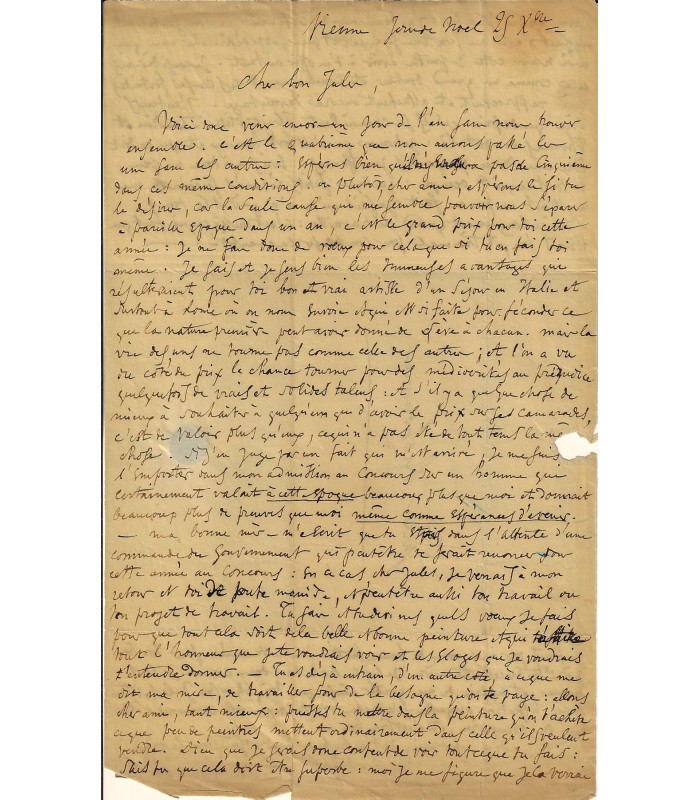 Vienne Jour de Noel 25 Xbre
Cher bon Jules,
Voici donc venir encore un jour de l'an sans nous trouver
ensemble. c'est le quatrième que nous aurons passé les
uns sans les autres : Espérons bien qu'il n'y aura pas de cinquième
dans ces même conditions : ou plutôt, cher ami, espérons le si tu
le désires, car la seule cause qui me semble pouvoir nous séparer
à pareille Epoque dans un an, c'est le grand prix pour toi cette
année : Je ne fais donc de voeux pour cela que si tu en fais toi
même. Je sais et je sens bien les Immenses avantages qui
résulteraient pour toi bon et vrai artiste d'un séjour en Italie et
surtout à Rome où on nous Envoie et qui est si faite pour féconder ce
que la nature première peut avoir donné de sève à chacun. mais la
vie des uns ne tourne pas comme celle des autres ; et l'on a vu
du côté du prix la chance tourner pour des médiocrités au préjudice
quelquefois de vrais et solides talens : Et s'il y a quelque chose de
mieux à souhaiter à quelqu'un que d'avoir le prix sur ses camarades,
c'est de valoir plus qu'eux, ce qui n'a pas été de tout tems la même
chose. J'en juge par un fait qui m'est arrivé, je me suis
l'Emporter dans mon admission au Concours sur un homme qui
certainement valait à cette époque beaucoup plus que moi et donnait
beaucoup plus de preuves que moi même comme Espérances d'avenir.
— ma bonne mère m'écrit que tu Es dans l'attente d'une
commande du Gouvernement qui peut être te ferait renoncer pour
cette année au Concours : En ce cas cher Jules, je verrais à mon
retour et toi de toute manière, et peut être aussi ton travail ou
ton projet de travail. Tu sais et tu devines quels voeux je fais
pour que tout cela soit de la belle et bonne peinture et qui
tout l'honneur que je te voudrais voir et les Eloges que je voudrais
t'entendre donner. — Tu es déjà en train, d'un autre côté, à ce que me
dit ma mère, de travailler pour de la besogne qu'on te paye : allons
cher ami, tant mieux : puisses tu mettre dans la peinture qu'on t'achète
ce que peu de peintres mettent ordinairement dans celle qu'ils veulent
vendre. Dieu que je serais donc content de voir tout ce que tu fais :
Sais tu que cela doit être superbe : moi je me figure que je la verrai